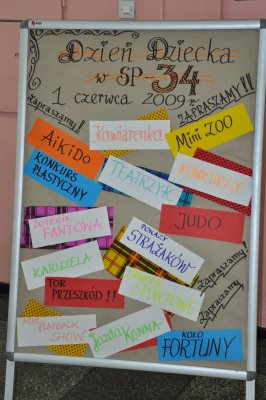 Dzień Dziecka
w SP-34
1 czerwca 2009 r.
zapraszamy!
ZAPRASZAMY!!
Kawiarenka
Mini ZOO
AiKiDO
KONKURS
PLASTYCZNY
TEATRZYK
KONKURSY
LOTERIA
FANTOWA
POKAZY
STRAŻAKÓW
JUDO
KARUZELA
ZABAWY
SPORTOWE
Zapraszamy!
Zapraszamy!
TOR
PRZESZKÓD!!
MINI
PLAYBACK
SHOW
Jazda KONNA
KOŁO
FORTUNY